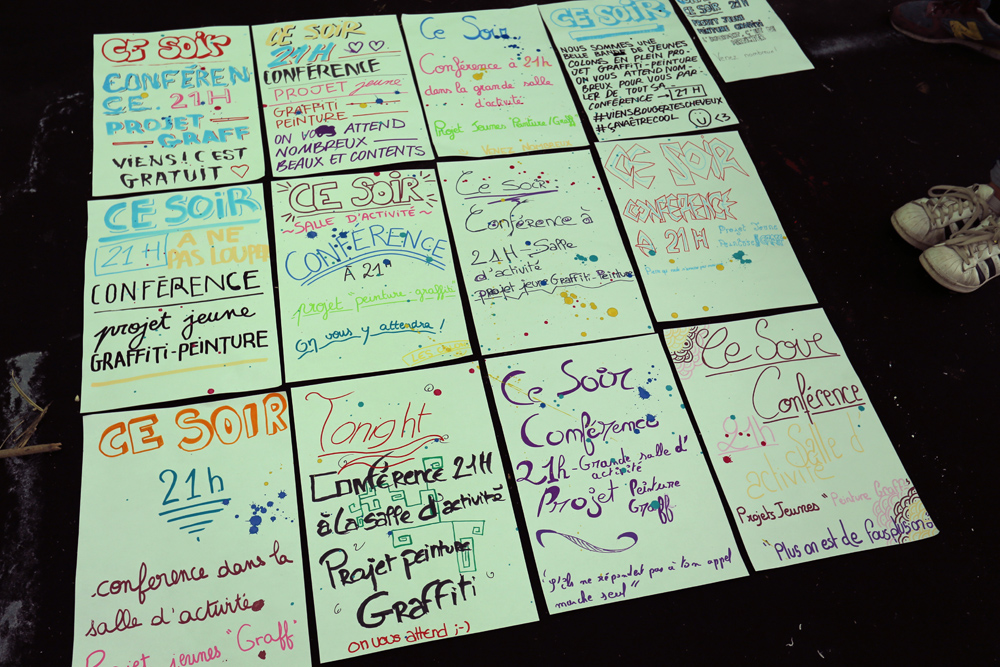 CE SOIR
CONFÉREN-
CE. 21H
PROJET
GRAFF
VIENS! C'EST
GRATUIT
CE SOIR
21H
CONFÉRENCE
PROJET jeune
GRAFFITI
PEINTURE
ON VOUS ATTEND
NOMBREUX
BEAUX ET CONTENTS
Ce Soir
Conférence à 21h
dans la grande salle
d'activité
Projet Jeunes Peinture/Graff
VENEZ NOMBREUX
CE SOIR
NOUS SOMMES UNE
BELLE BANDE DE JEUNES
COLONS EN PLEIN PRO-
JET GRAFFITI-PEINTURE
ON VOUS ATTEND NOM-
BREUX POUR VOUS PAR-
LER DE TOUT SA
CONFÉRENCE → 21H
#VIENSBOUGERTESCHEVEUX
#SAVAÊTRECOOL
<3
CE SOIR
21H!
À NE
PAS LOUPER
CONFÉRENCE
projet jeune
GRAFFITI-PEINTURE
CE SOIR
~SALLE D'ACTIVITÉ~
CONFÉRENCE
À 21H
projet "peinture-graffiti"
On vous y attendra!
Ce soir
Conférence à
21H-Salle
d'activité
projet jeune Graffiti-Peinture
CE SOIR
CONFERENCE
A 21H
Projet Jeune
Peinture
CE SOIR
21h
conference dans la
salle d'activité
Projet jeunes "Graff"
Tonight
Conférence 21H
à La salle d'activité
Projet peinture
Graffiti
on vous attend ;-)
Ce Soir
Conférence
21h-Grande salle d'
activité
Projet Peinture
Graff
ne répondent pas à ton appel
marche seul"
Ce Soir
Conférence
21h
Salle d'
activité
Projets Jeunes "Peinture Graff"
"Plus on est de fous plus on